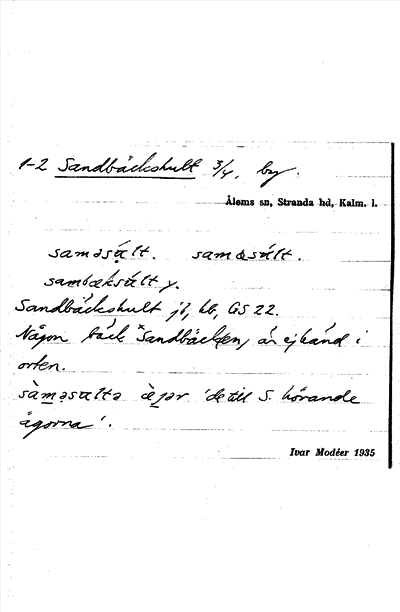 1-2 Sandbäckshult 3/4, by.
Ålems sn, Stranda hd, Kalm. l.
saməsụ́lt. samɵsúlt.
sambæksúlt y.
Sandbäckshult jb, hb, GS 22.
Någon bäck *Sandbäck(en) är ej känd i
orten.
sàm̲əsultə æ̀j̲ər 'de till S. hörande
ägorna'.
Ivar Modéer 1935